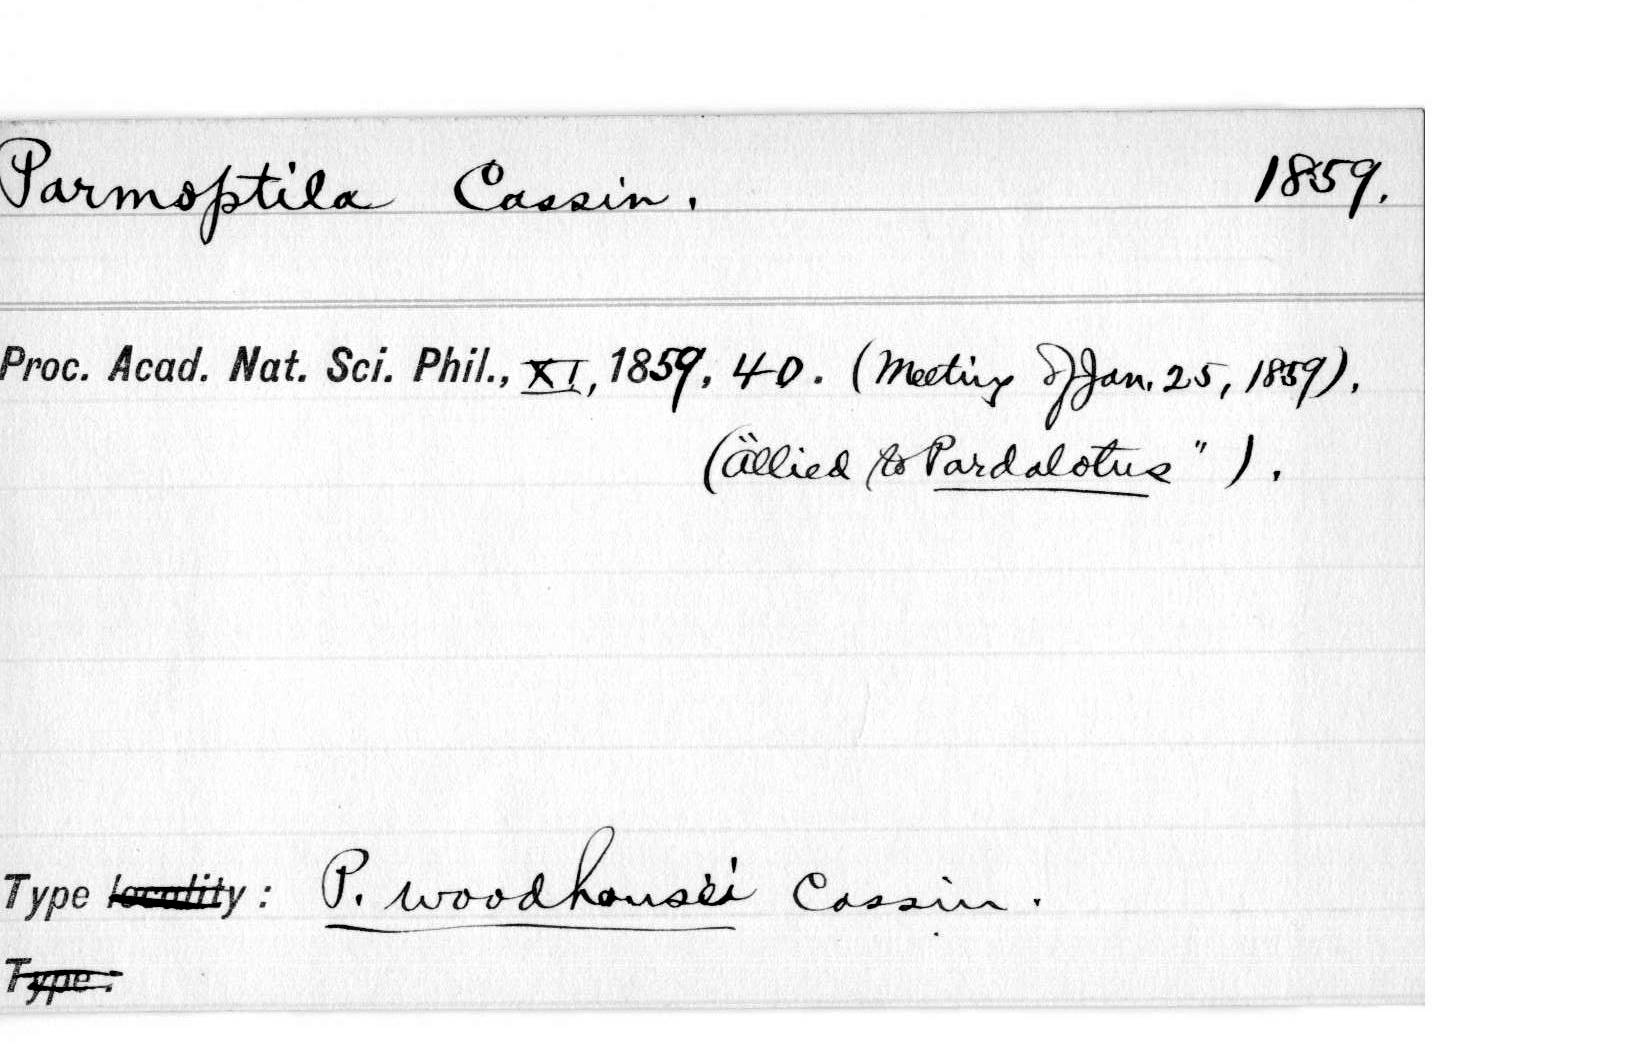 Parmoptila Cassin. 1859.
Proc. Acad. Nat. Sci. Phil., XI, 1859, 40. (Meeting of Jan. 25, 1859).
("Allied to Pardalotus").
Type locality: P. woodhousei Cassin.
Type: